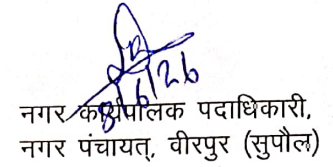 8/6/26
नगर कार्यपालक पदाधिकारी,
नगर पंचायत्, वीरपुर (सुपौल)